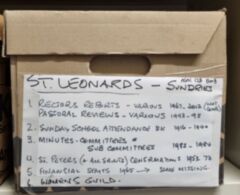 ST. LEONARDS - SUNDRIES
1. RECTORS REPORTS - VARIOUS 1967, 2012
PASTORAL REVIEWS - VARIOUS 1993-98
2. SUNDAY SCHOOL ATTENDANCE BK 1916-19
3. MINUTES - COMMITTEES
" SUB COMMITTEES 1982-1984
4. ST. PETERS (+ ALL SAINTS) CONFIRMATIONS 1953
5. FINANCIAL SHEETS 1965 → SOME MISSING
6. WOMEN'S GUILD -